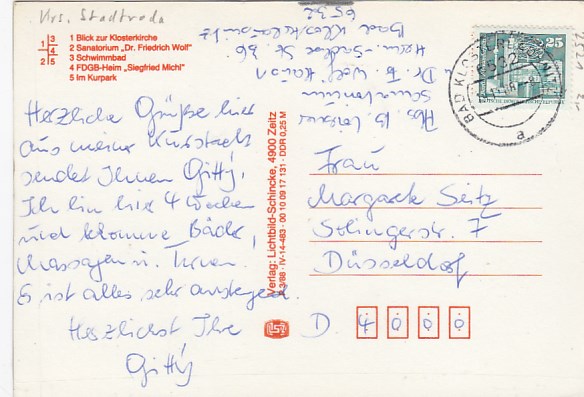 Krs. Stadtroda
1 Blick zur Klosterkirche
2 Sanatorium „Dr. Friedrich Wolf"
3 Schwimmbad
4 FDGB-Heim „Siegfried Michl"
5 Im Kurpark
1 3
4
2 5
Herzliche Grüße hier
aus meiner Kurstadt
sendet Ihnen Gitti,
Ich bin hier 4 Wochen
und bekomme Bäder,
Massagen u. Turnen.
Es ist alles sehr anstrengend.
Herzlichst Ihre
Gitti
Verlag: Lichtbild-Schincke, 4900 Zeitz
IV-14-483 · 00 10 09 17 131 · DDR 0,25 M
Abs. B.
Sanatorium
Dr. F. Wolf
Herm.-Sachse Str.
Bad Klosterlausnitz
6532
25
DEUTSCHE DEMOKRATISCHE REPUBLIK
BAD KLOSTERLAUSNITZ
a
Frau
Margarete Seitz
Solingerstr. 7
Düsseldorf
D. 4000